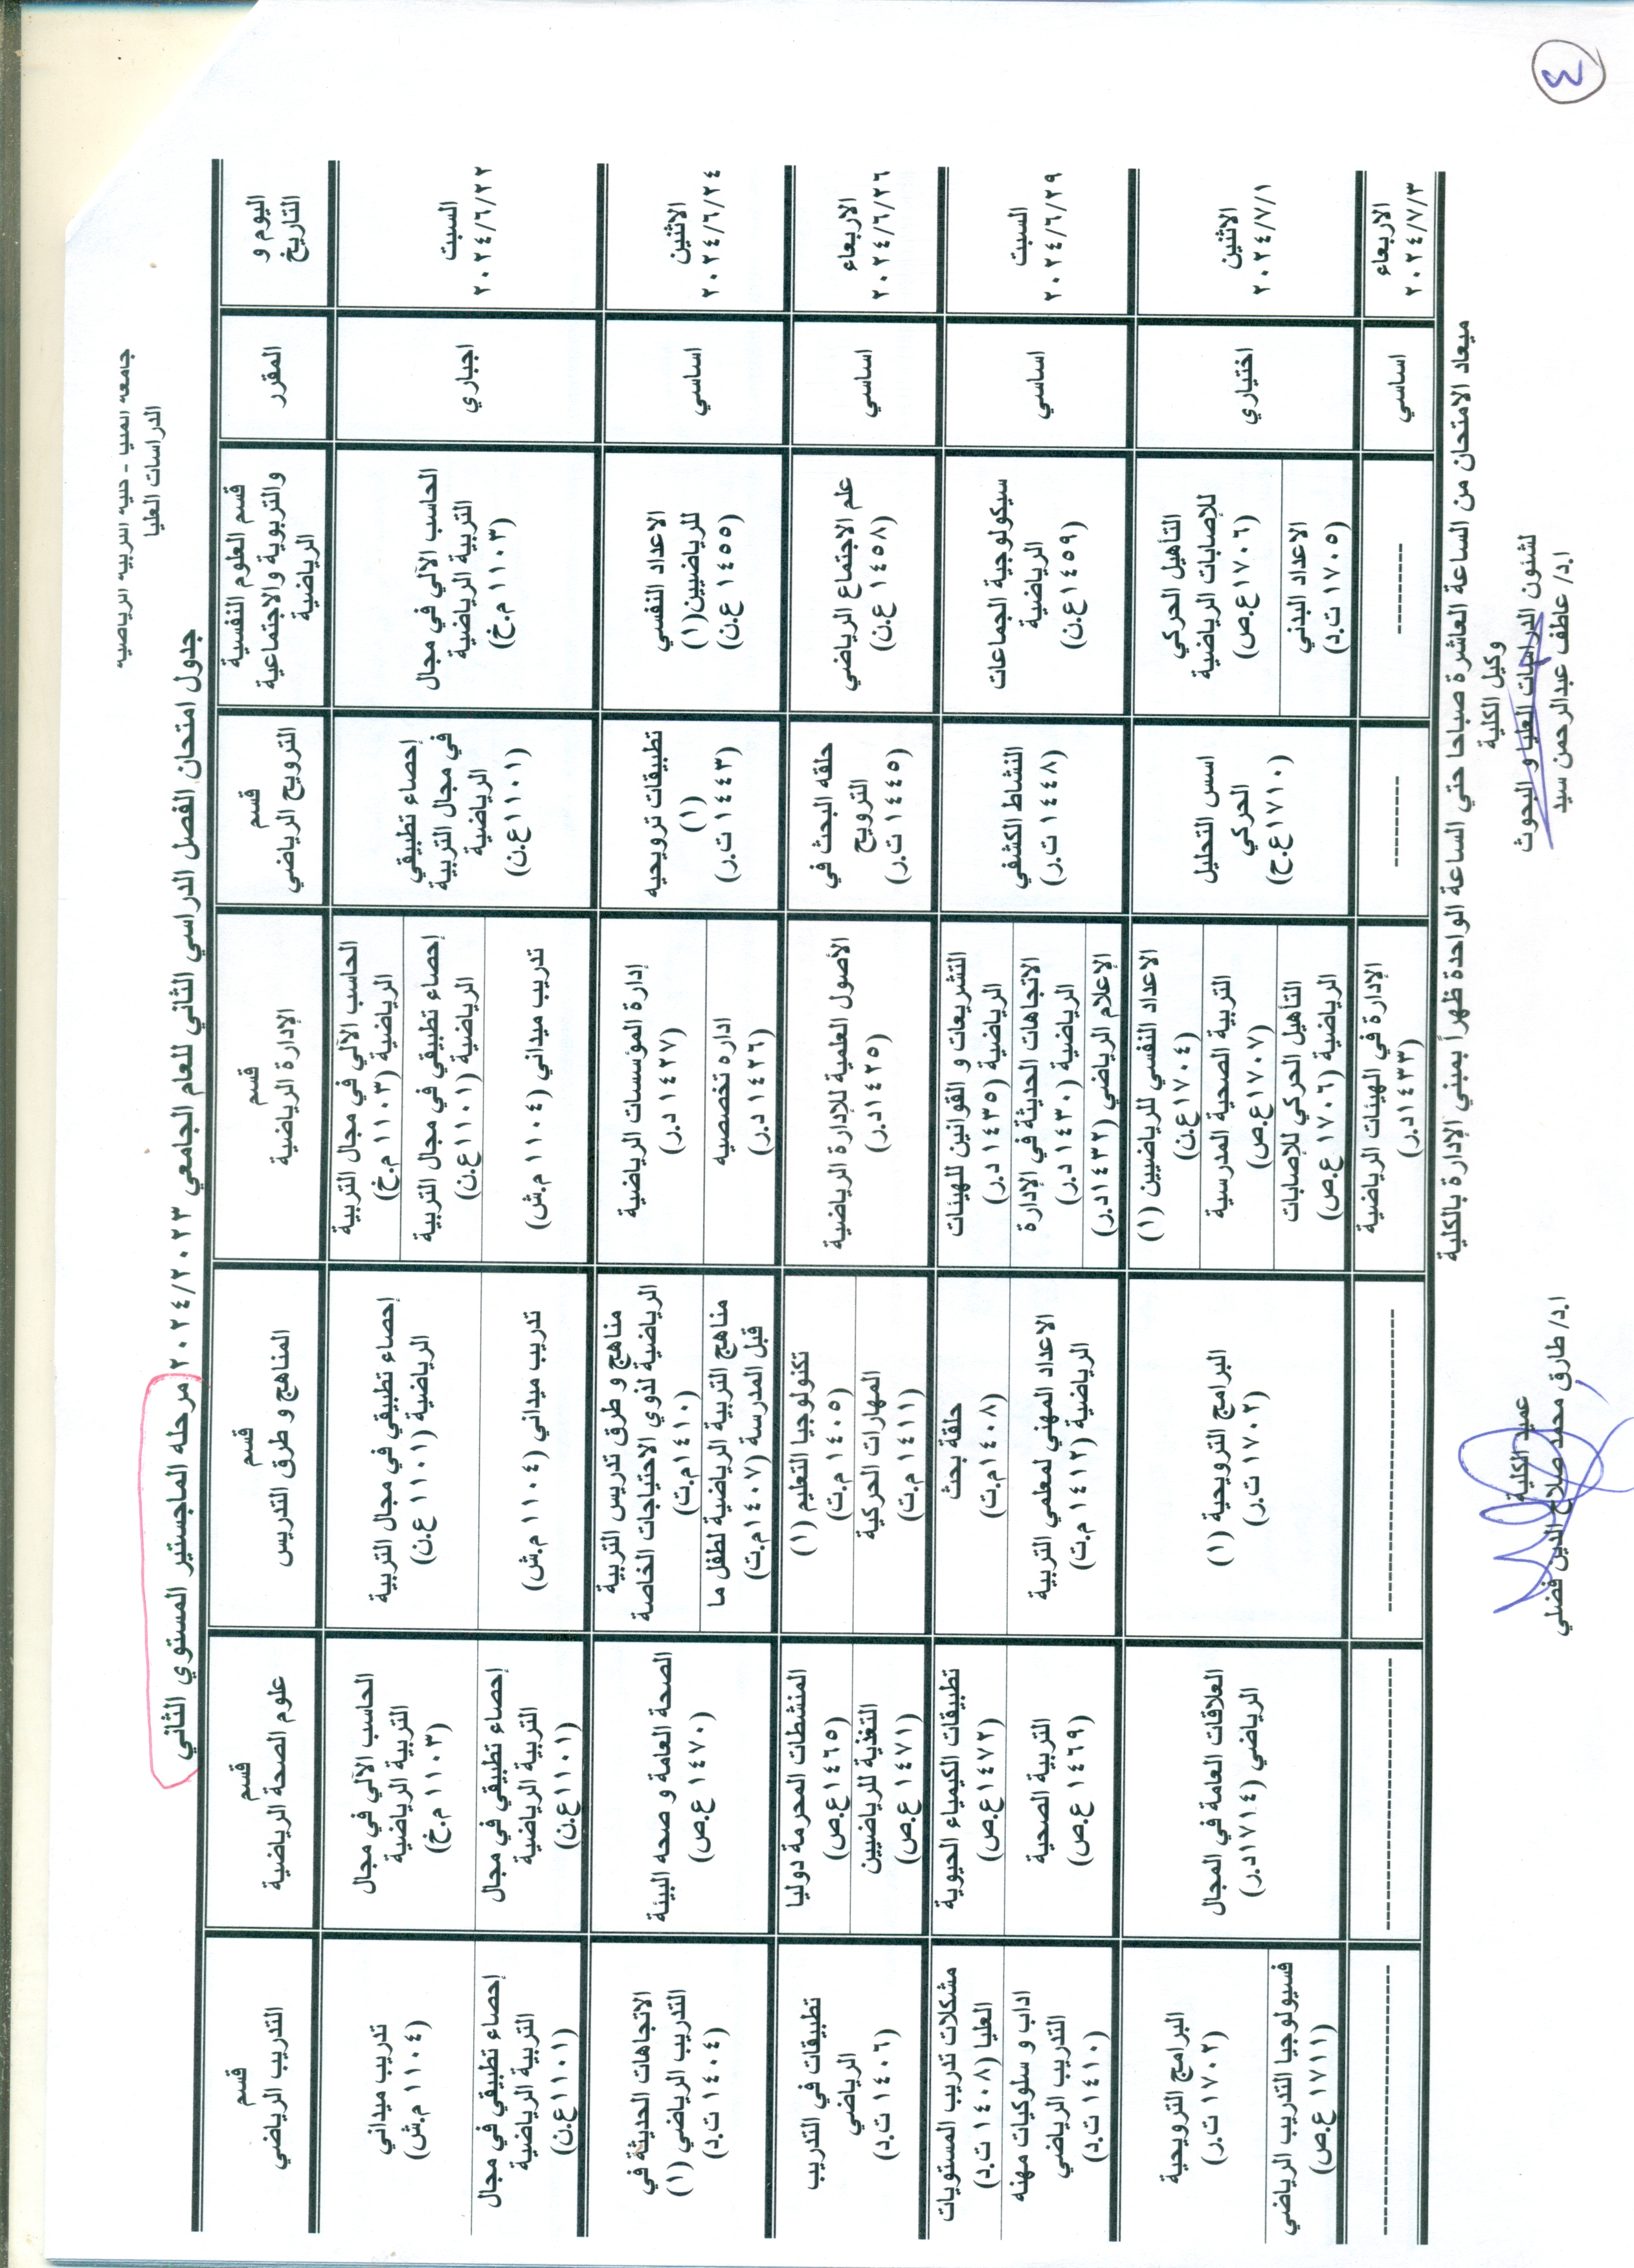 ٤
جامعه المنيا - كليه التربيه الرياضيه
الدراسات العليا
جدول امتحان الفصل الدراسي الثاني للعام الجامعي ٢٠٢٤/٢٠٢٣ مرحله الماجستير المستوي الثاني
اليوم و
التاريخ
المقرر
قسم العلوم النفسية
والتربوية والاجتماعية
الرياضية
قسم
الترويح الرياضي
قسم
الإدارة الرياضية
قسم
المناهج و طرق التدريس
قسم
علوم الصحة الرياضية
قسم
التدريب الرياضي
السبت
٢٠٢٤/٦/٢٢
اجباري
الحاسب الآلي في مجال
التربية الرياضية
(١١٠٣ م.خ)
إحصاء تطبيقي
في مجال التربية
الرياضية
(١١٠١ع.ن)
الحاسب الآلي في مجال التربية
الرياضية (١١٠٣ م.خ)
إحصاء تطبيقي في مجال التربية
الرياضية (١١٠١ع.ن)
تدريب ميداني (١١٠٤ م.ش)
إحصاء تطبيقي في مجال التربية
الرياضية (١١٠١ ع.ن)
تدريب ميداني (١١٠٤ م.ش)
الحاسب الآلي في مجال
التربية الرياضية
(١١٠٣ م.خ)
إحصاء تطبيقي في مجال
التربية الرياضية
(١١٠١ع.ن)
تدريب ميداني
(١١٠٤ م.ش)
إحصاء تطبيقي في مجال
التربية الرياضية
(١١٠١ع.ن)
الاثنين
٢٠٢٤/٦/٢٤
اساسي
الاعداد النفسي
للرياضيين(١)
(١٤٥٥ ع.ن)
تطبيقات ترويحيه
(١)
(١٤٤٣ ت.ر)
إدارة المؤسسات الرياضية
(١٤٢٧ د.ر)
اداره تخصصيه
(١٤٢٦ د.ر)
مناهج و طرق تدريس التربية
الرياضية لذوي الاحتياجات الخاصة
(١٤١٠م.ت)
مناهج التربية الرياضية لطفل ما
قبل المدرسة (١٤٠٧م.ت)
الصحة العامة و صحه البيئة
(١٤٧٠ ع.ص)
الاتجاهات الحديثة في
التدريب الرياضي (١)
(١٤٠٤ ت.د)
الاربعاء
٢٠٢٤/٦/٢٦
اساسي
علم الاجتماع الرياضي
(١٤٥٨ ع.ن)
حلقه البحث في
الترويح
(١٤٤٥ ت.ر)
الأصول العلمية للإدارة الرياضية
(١٤٢٥د.ر)
تكنولوجيا التعليم (١)
(١٤٠٥ م.ت)
المهارات الحركية
(١٤١١ م.ت)
المنشطات المحرمة دوليا
(١٤٦٥ع.ص)
التغذية للرياضيين
(١٤٧١ ع.ص)
تطبيقات في التدريب
الرياضي
(١٤٠٦ ت.د)
السبت
٢٠٢٤/٦/٢٩
اساسي
سيكولوجية الجماعات
الرياضية
(١٤٥٩ع.ن)
النشاط الكشفي
(١٤٤٨ ت.ر)
التشريعات و القوانين للهيئات
الرياضية (١٤٣٥ د.ر)
الاتجاهات الحديثة في الإدارة
الرياضية (١٤٣٠ د.ر)
الإعلام الرياضي (١٤٣٢د.ر)
حلقة بحث
(١٤٠٨م.ت)
الاعداد المهني لمعلمي التربية
الرياضية (١٤١٢ م.ت)
تطبيقات الكيمياء الحيوية
(١٤٧٢ع.ص)
التربية الصحية
(١٤٦٩ ع.ص)
مشكلات تدريب المستويات
العليا (١٤٠٨ ت.د)
اداب و سلوكيات مهنه
التدريب الرياضي
(١٤١٠ ت.د)
الاثنين
٢٠٢٤/٧/١
اختياري
التأهيل الحركي
للإصابات الرياضية
(١٧٠٦ع.ص)
الاعداد البدني
(١٧٠٥ ت.د)
اسس التحليل
الحركي
(١٧١٠ع.ح)
الاعداد النفسي للرياضيين (١)
(١٧٠٤ع.ن)
التربية الصحية المدرسية
(١٧٠٧ع.ص)
التأهيل الحركي للإصابات
الرياضية (١٧٠٦ ع.ص)
البرامج الترويحية (١)
(١٧٠٢ ت.ر)
العلاقات العامة في المجال
الرياضي (١٧١٤د.ر)
البرامج الترويحية
(١٧٠٢ ت.ر)
فسيولوجيا التدريب الرياضي
(١٧١١ ع.ص)
الاربعاء
٢٠٢٤/٧/٣
اساسي
---------
---------
الإدارة في الهيئات الرياضية
(١٤٣٣د.ر)
-----------------------------
--------------------------
--------------------------
ميعاد الامتحان من الساعة العاشرة صباحا حتي الساعة الواحدة ظهراً بمبني الإدارة بالكلية
وكيل الكلية
لشئون الدراسات العليا و البحوث
ا.د/ عاطف عبدالرحمن سيد
عميد الكلية
ا.د/ طارق محمد صلاح الدين فضلي